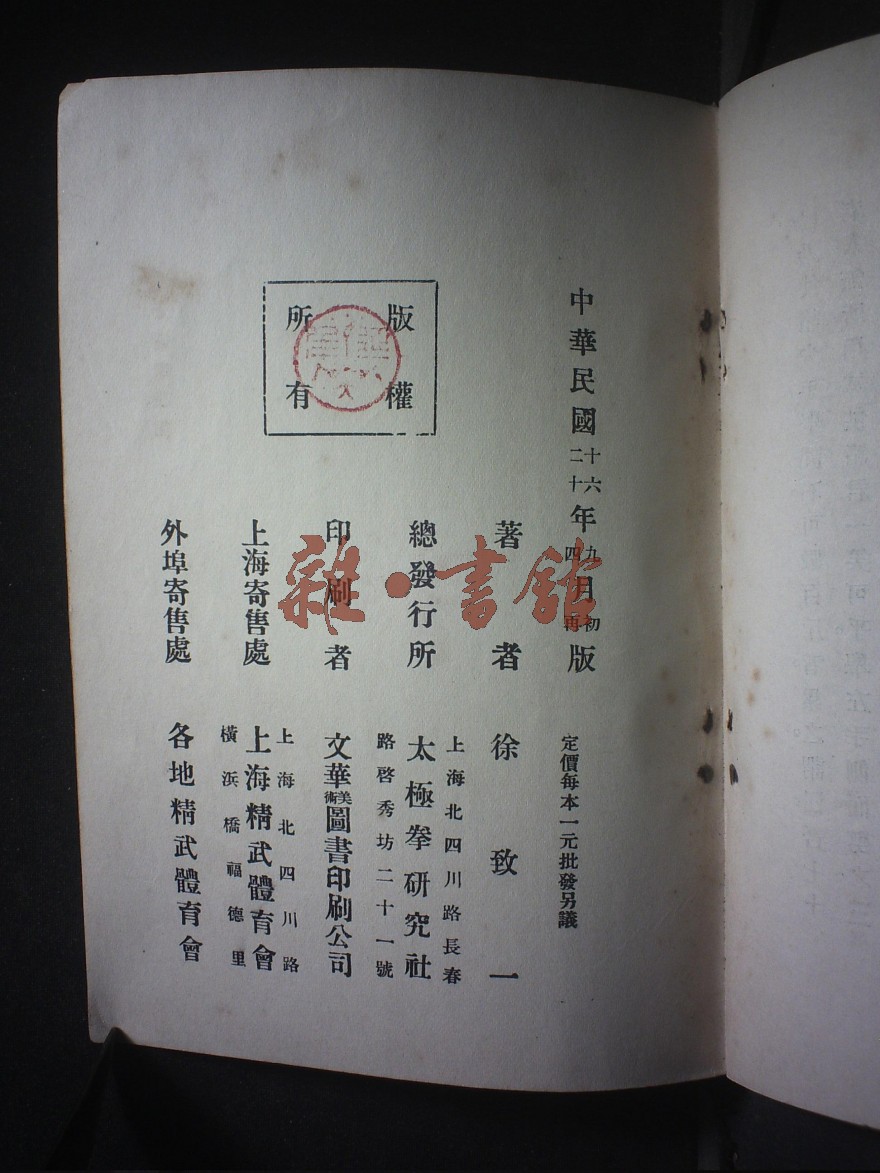 中華民國十六年九月初版
二十四再
定價每本一元批發另議
版權所有
著者 徐致一
總發行所 太極拳研究社
上海北四川路長春
路啓秀坊二十一號
印刷者 文華美術圖書印刷公司
上海寄售處 上海精武體育會
上海北四川路
橫浜橋福德里
外埠寄售處 各地精武體育會
雜·書館